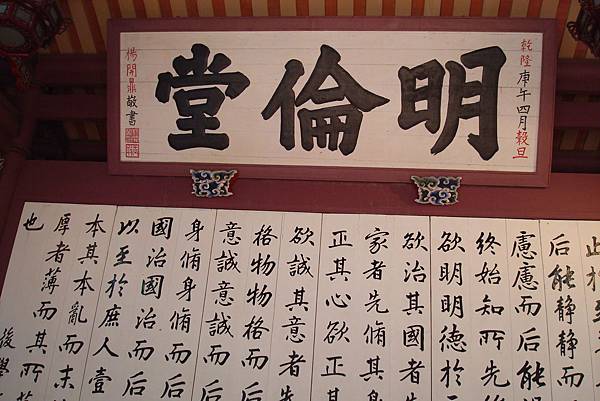 明倫堂
乾隆庚午四月穀旦
楊開鼎敬書
於至
后能静静而
慮慮而后能
終始知所先
欲明明德於
欲治其國者
家者先脩其身
正其心欲正其
欲誠其意者先
格物物格而后
意誠意誠而后
身脩身脩而后
國治國治而后
以至於庶人壹
本其本亂而末
厚者薄而其所
也
後學